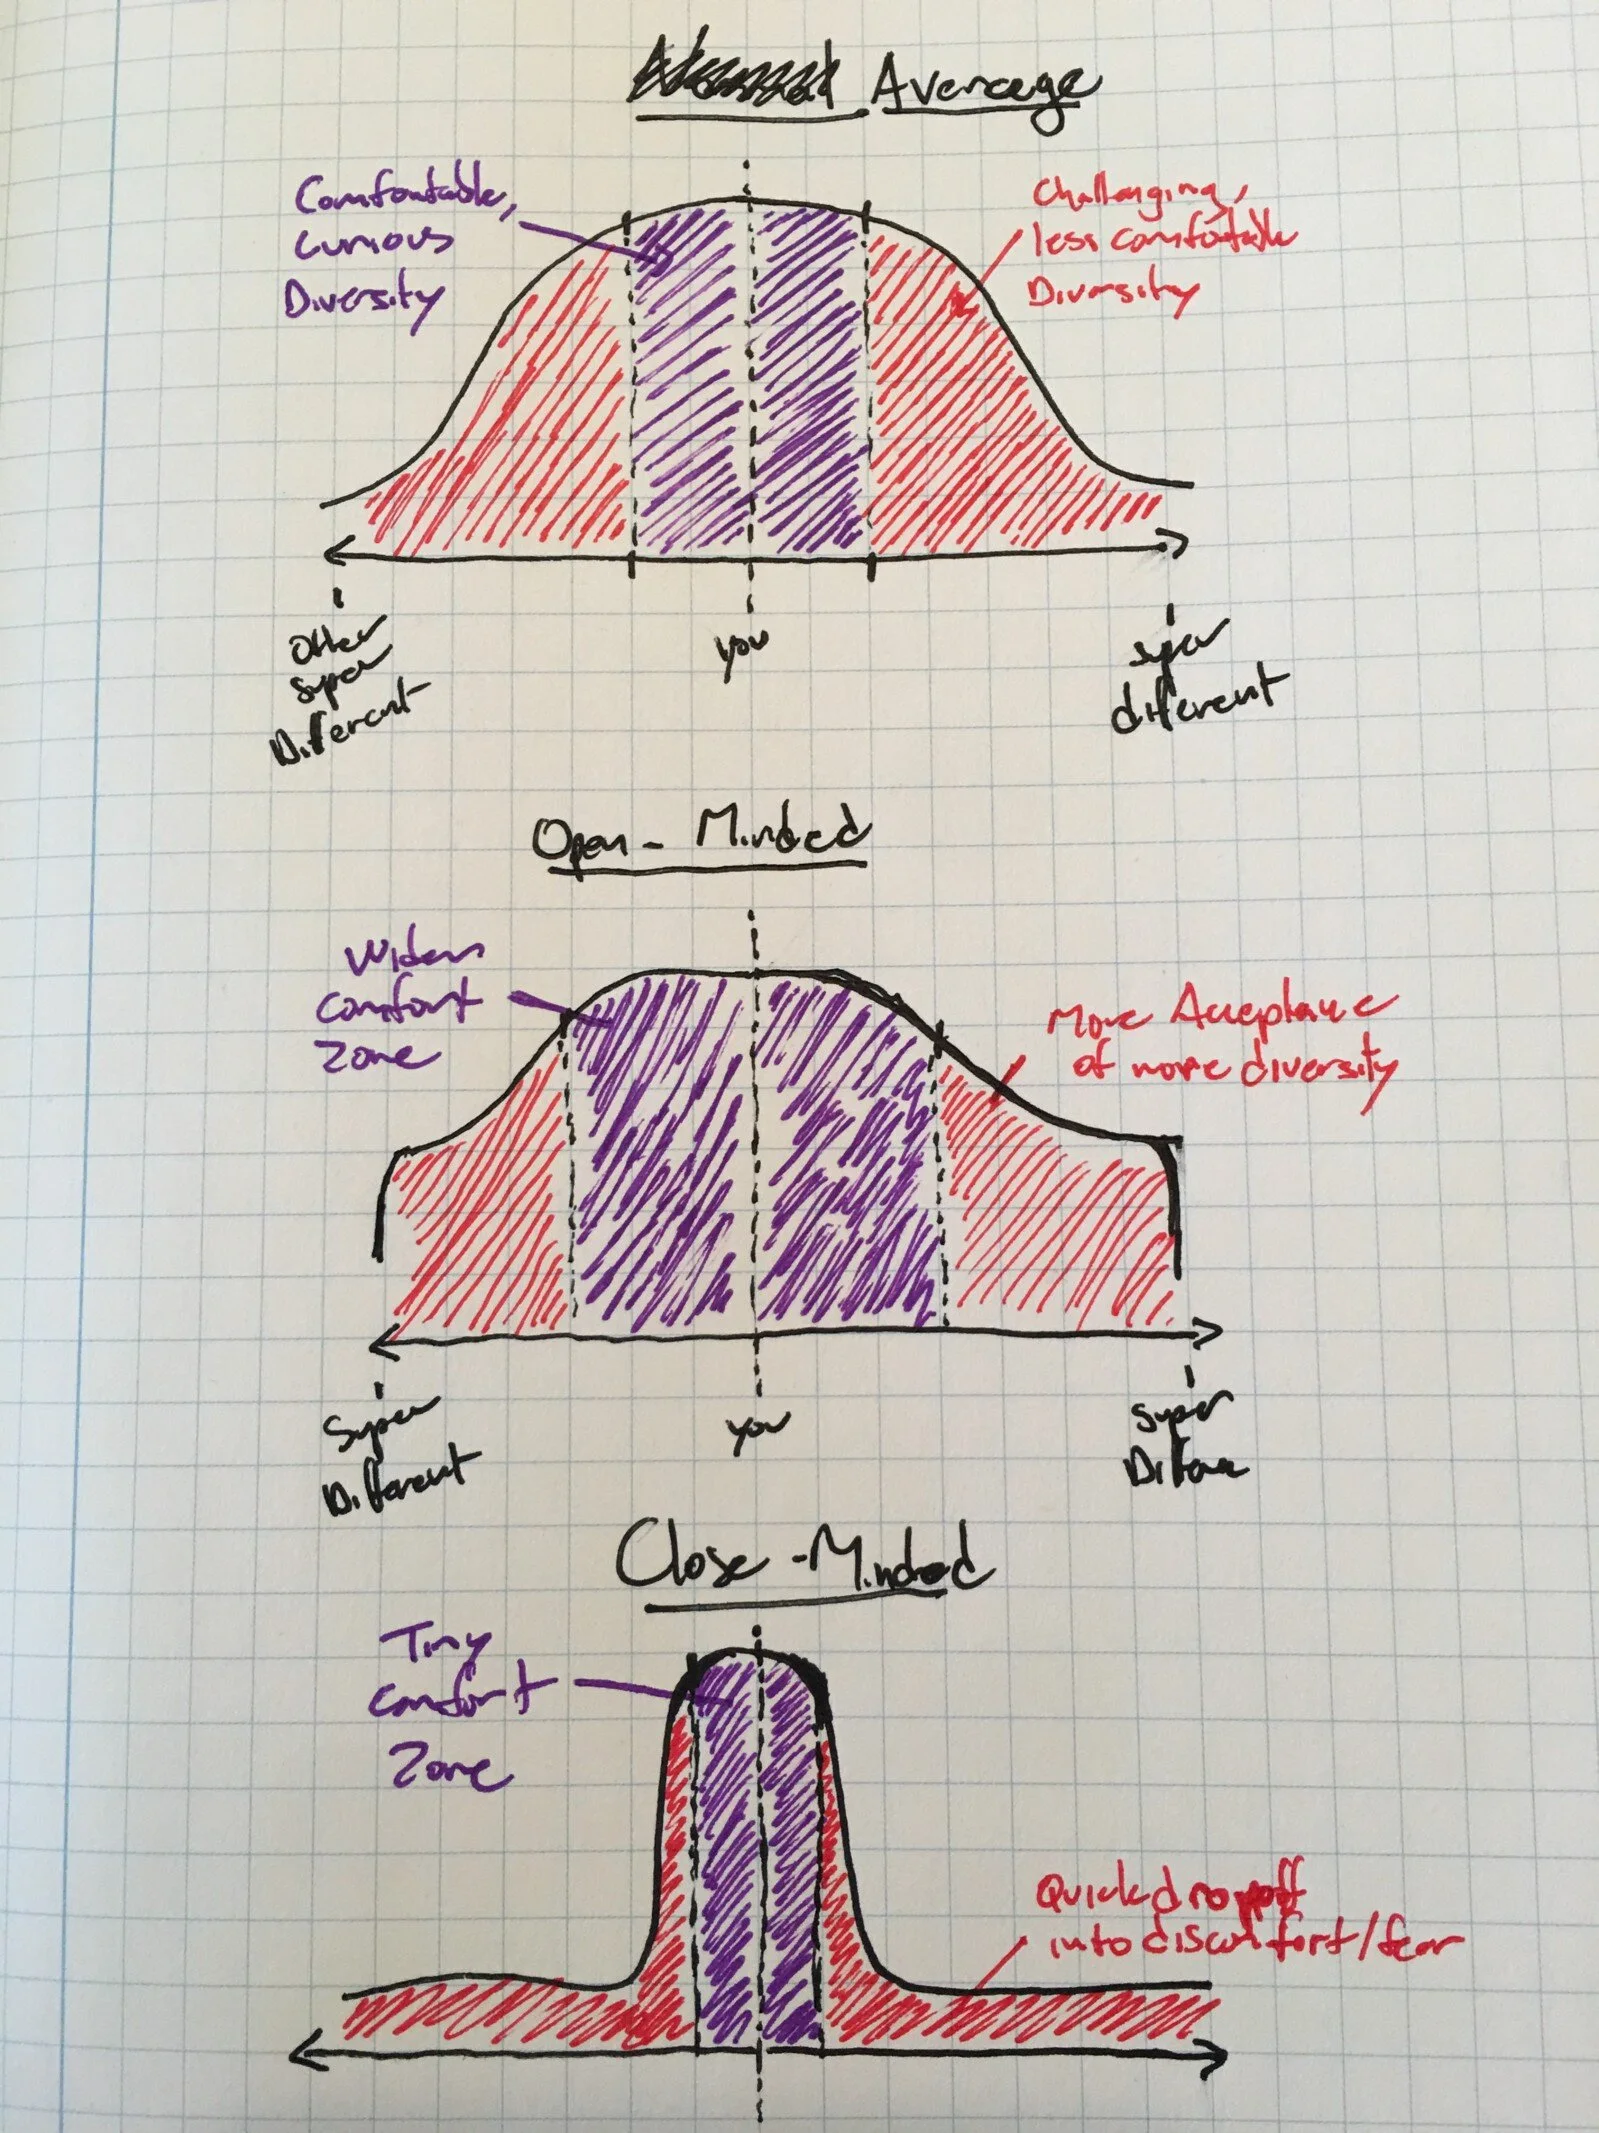 Average
Comfortable,
Curious
Diversity
Challenging,
less comfortable
Diversity
Other
super
Different
you
super
different
Open-Minded
Widen
comfort
Zone
More Acceptance
of more diversity
Super
Different
you
super
Close-Minded
Tiny
comfort
Zone
Quick dropoff
into discomfort/fear